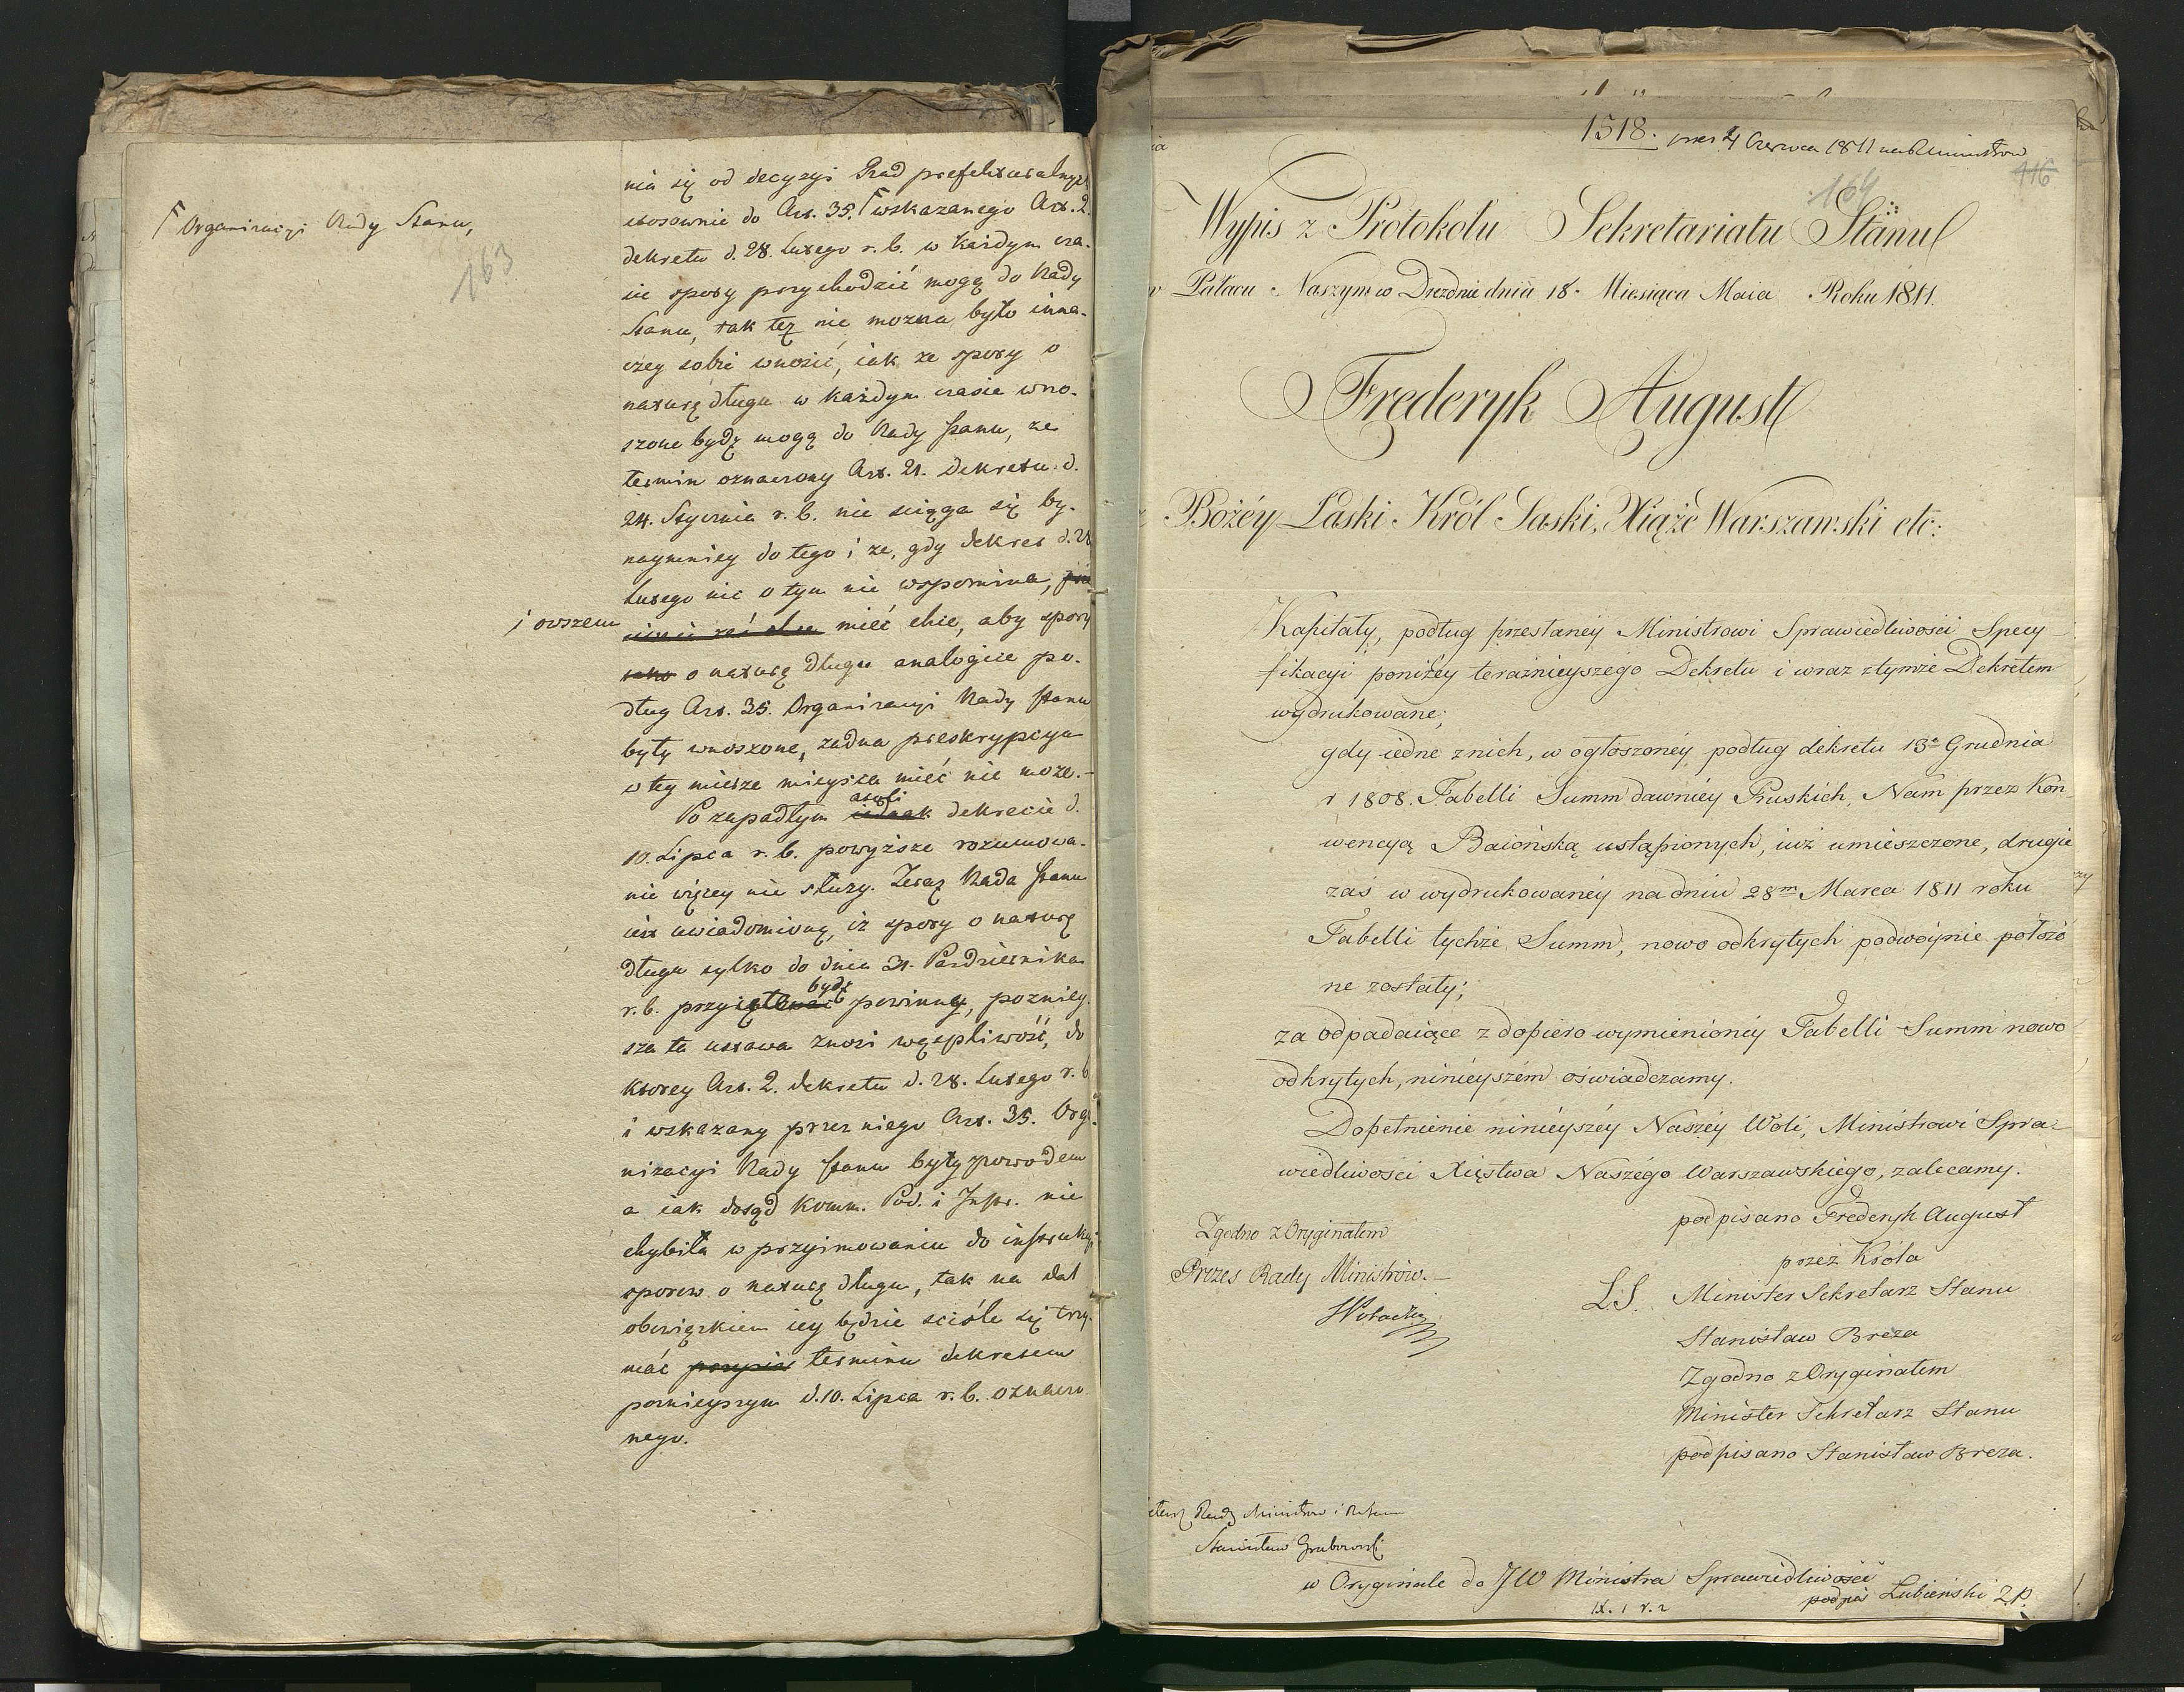 163
Γ Organizacyi Rady Stanu,
i owszem
nia się od decyzyi Rad prefekturalnych
stosownie do Art. 35. Γ wskazanego Art. 2.
dekretu d. 28. Lutego r. b. w każdym cza-
sie spory przychodzić mogą do Rady
Stanu, tak też nie można było inna-
czey sobie wnosić, iak że spory o
naturę długu w każdym czasie wno-
szone bydź mogą do Rady Stanu, że
termin oznaczony Art. 21. dekretu d.
24. Stycznia r. b. nie sciąga się by-
naymniey do tego i że, gdy dekret d. 28
Lutego nic o tym nie wspomina,
mieć chce, aby spory
o naturę długu analogice po-
dług Art. 35. Organizacyi Rady Stanu
były wnoszone, żadna preskrypcya
w tey mierze mieysca mieć nie może.-
Po zapadłym iednak atoli dekrecie d.
10. Lipca r. b. powyższe rozumowa-
nie więcey nie służy. Teraz Rada Stanu
iest uwiadomioną, iż spory o naturę
długu tylko do dnia 31. Pazdziernika
r. b. bydź powinny, pozniey-
sza ta ustawa znosi wątpliwość, do
ktorey Art. 2. dekretu d. 28. Lutego r. b
i wskazany przez niego Art. 35. Orga-
nizacyi Rady Stanu były powodem
a iak dotąd Komm. Pod. i Instr. nie
chybiła w przyimowaniu do instrukcyi
sporow o naturę długu, tak na dal
obowiązkiem iey będzie sciśle się trzy-
mać terminu dekretem
poznieyszym d. 10. Lipca r. b. oznaczo
nego.
1518. pres 4 Czerwca 1811 na R Ministrow
116
164
Wypis z Protokołu Sekretariatu Stanu
w Pałacu Naszym w Dreźdnie dnia 18. Miesiąca Maia Roku 1811.
Frederyk August
Bożéy Łaski Król Saski, Xiąże Warszawski etc:
Kapitały, podług przesłanéy Ministrowi Sprawiedliwości Specy-
fikacyi poniżéy teraźnieyszego Dekretu i wraz z tymże Dekretem
wydrukowane;
gdy iedne z nich, w ogłoszonéy podług dekretu 13o Grudnia
r 1808. Tabelli Summ dawniéy Pruskich, Nam przez Kon-
wencyą Baiońską ustąpionych, iuż umieszczone, drugie
zaś w wydrukowanéy na dniu 28m Marca 1811 roku
Tabelli tychże Summ, nowo odkrytych podwóynie położo
ne zostały;
za odpadaiące z dopiero wymienionéy Tabelli Summ nowo
odkrytych, ninieyszém oświadczamy.
Dopełnienie ninieyszéy Naszéy Woli, Ministrowi Spra-
wiedliwości Xięstwa Naszego Warszawskiego, zalecamy.
podpisano Frederyk August
przez Króla
L.S. Minister Sekretarz Stanu
Stanisław Breza
Zgodno z Oryginałem
Minister Sekretarz Stanu
podpisano Stanisław Breza.
Zgodno z Oryginałem
Prezes Rady Ministrów.-
Rady Ministrow i
Stanisław Grabowski
w Oryginale do JW Ministra Sprawiedliwości
podpis Łubieński